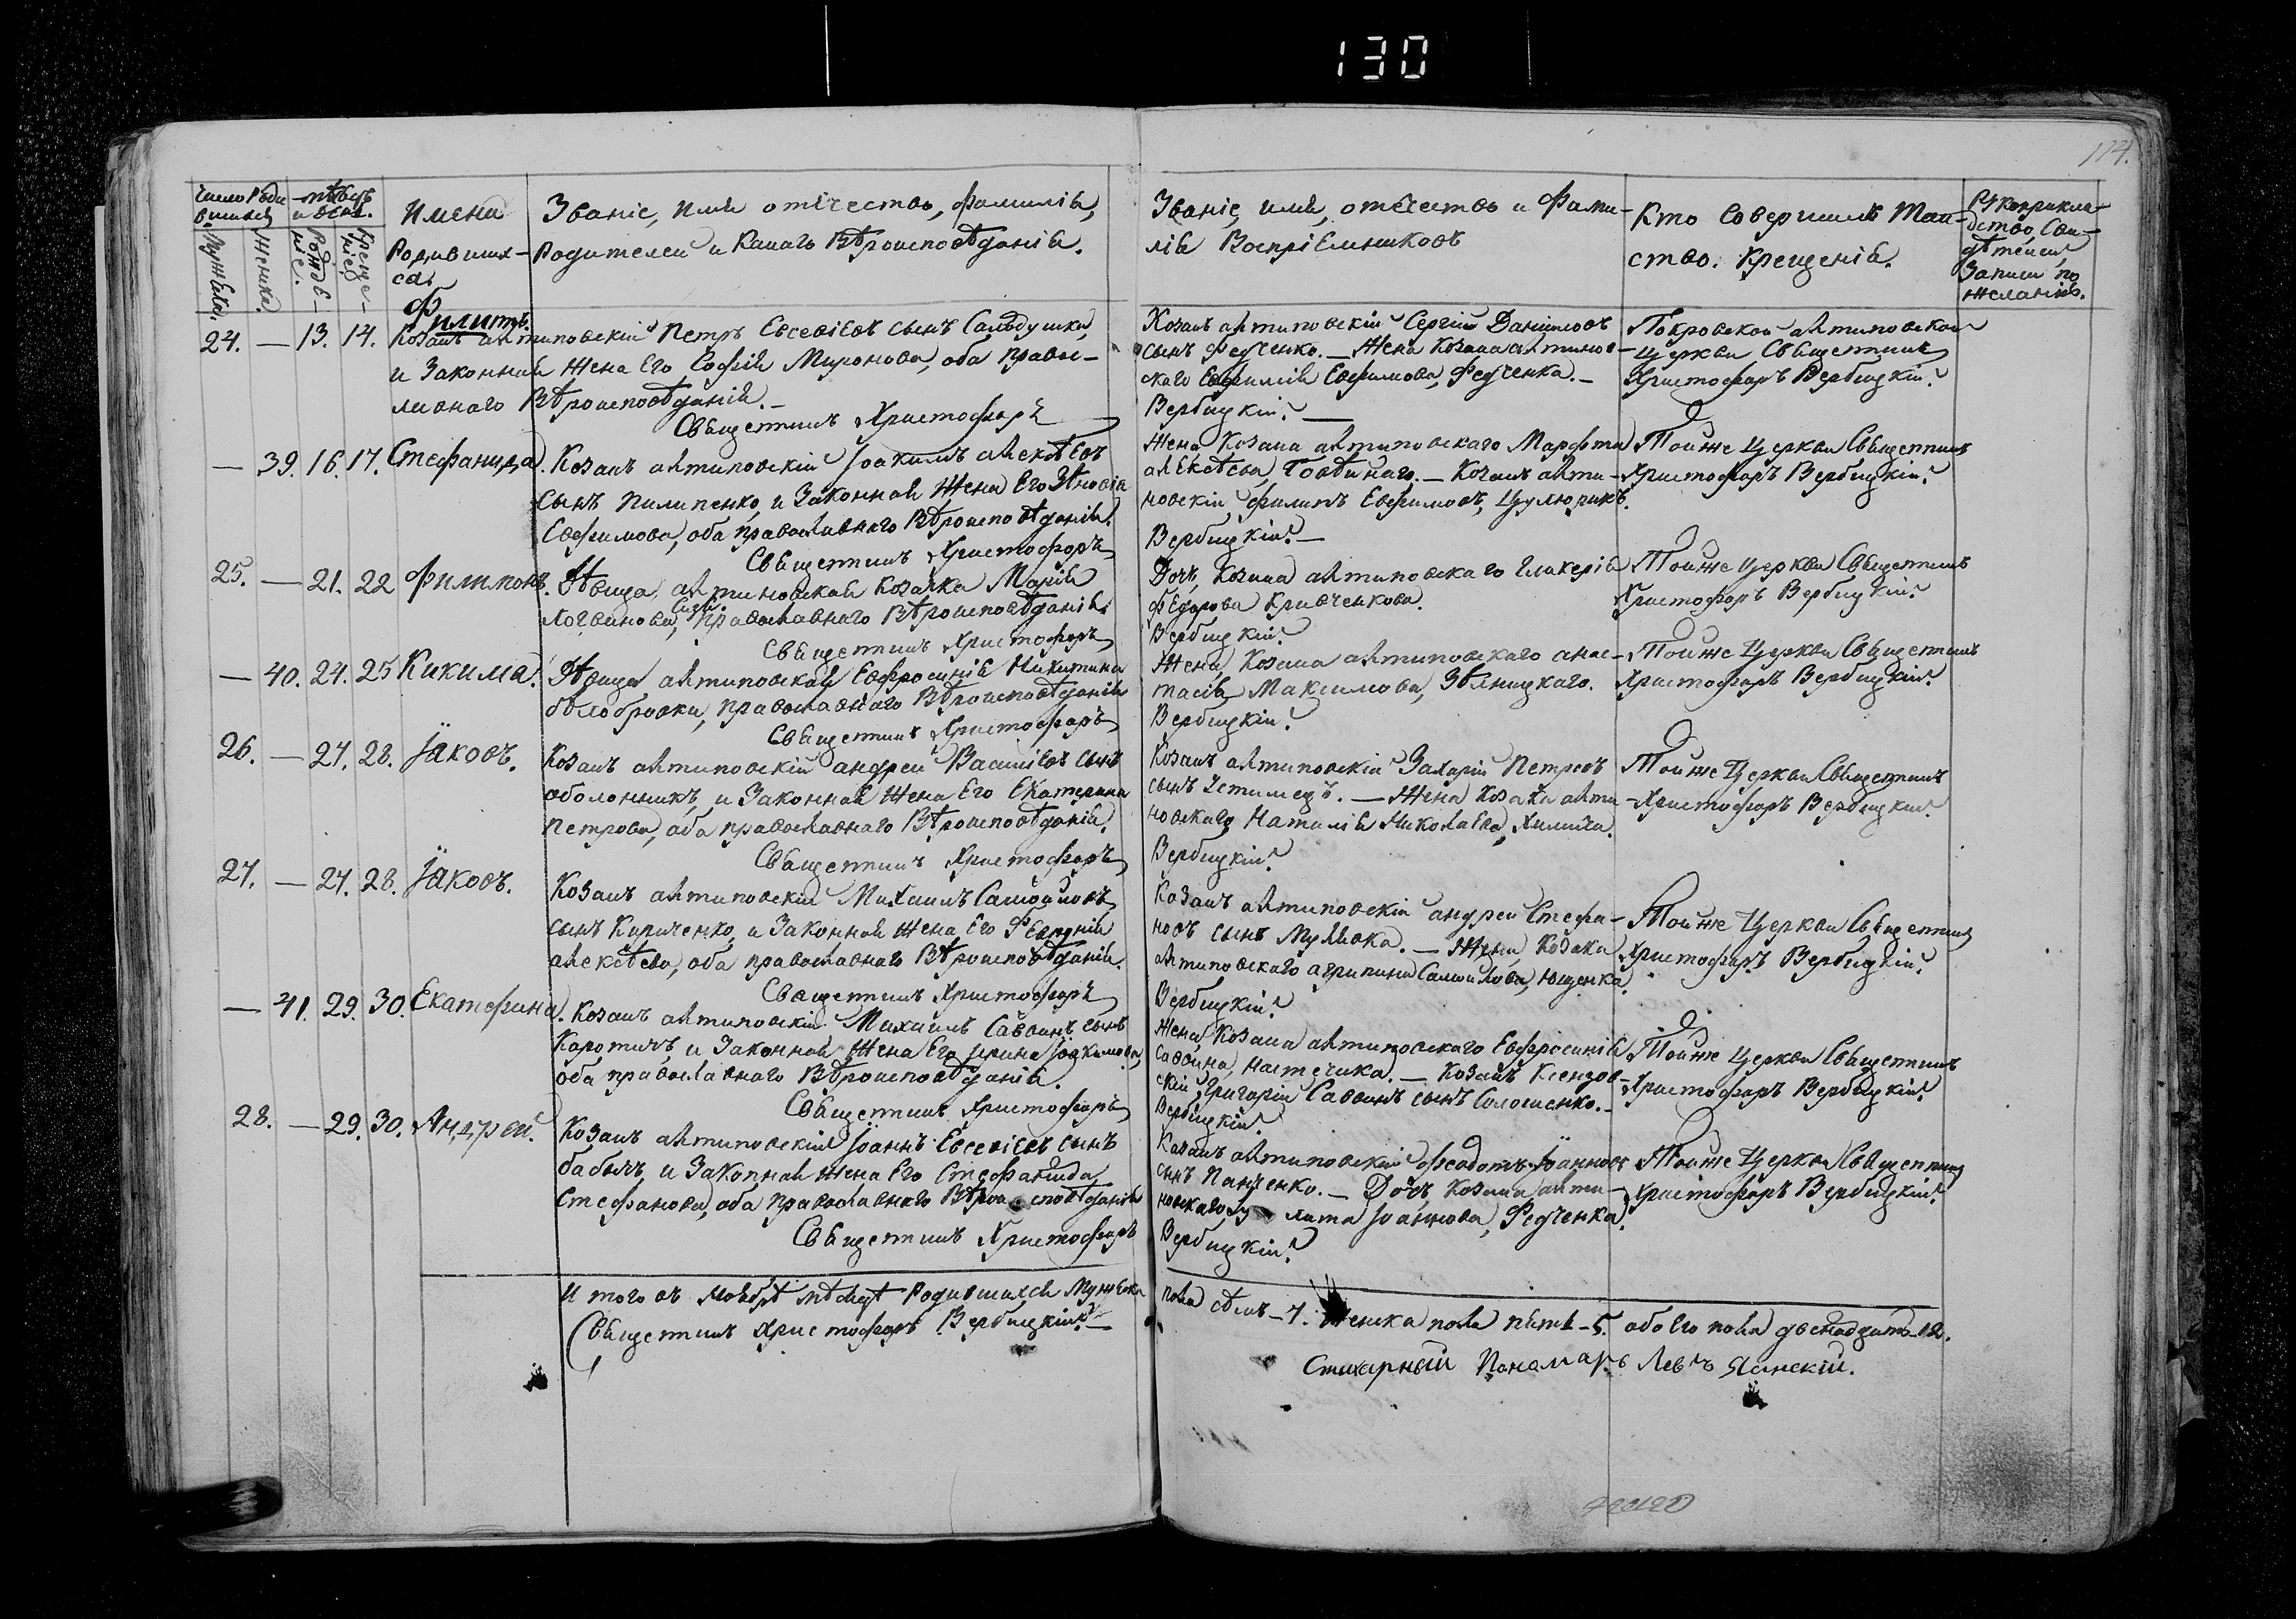 130
114.
Число Роди
вшихся
Мужеска.
Женска.
мѣсяцъ
и день.
Рожде-
ніе.
Креще-
ніе.
Имена
Родивших-
ся
Званіе, имя отечество, фамилія,
Родителей и Какого Вѣроисповѣданія.
Званіе, имя, отечество и Фами-
лія Воспріемниковъ
Кто Совершилъ Таин-
ство. Крещенія.
Рукоприкла-
дство Сви-
дѣтелей
Записи по
желанію.
24. — 13. 14. Филиппъ.
Козакъ антиповскій Петръ Евсевіевъ сынъ
и Законная Жена Его Софія Миронова, оба Правос-
лавного Вѣроисповѣданія. —
Священникъ Христофоръ
Козакъ антиповскій Сергій Даніиловъ
сынъ Федченко. — Жена Козака антипов-
скаго Евфимія Евфимова, Федченка. —
Вербицкій.
Покровской антиповской
Церкви Священникъ
Христофоръ Вербицкій.
— 39. 16. 17. Стефанида.
Козакъ антиповскій Іоакимъ алексѣевъ
сынъ Пилипенко, и Законная Жена Его Зѣновія
Евфимова, оба православнаго Вѣроисповѣданія.
Священникъ Христофоръ
Жена Козака антиповскаго Марфа
алексѣева, — Козакъ анти-
повскій филипъ Евфимовъ,
Вербицкій. —
Тойже Церкви Священникъ
Христофоръ Вербицкій.
25. — 21. 22 Филимонъ.
Дѣвица, антиповская Козачка Марія
Логвинова, православнаго Вѣроисповѣданія.
Священникъ Христофоръ
Дочь Козака антиповскаго Гликерія
Федорова Кривченкова.
Вербицкій.
Тойже Церкви Священникъ
Христофоръ Вербицкій.
— 40. 24. 25 Кикилія.
Дѣвица, антиповская Евфросинія Никитина
бѣлобровки, православнаго Вѣроисповѣданія
Священникъ Христофоръ
Жена Козака антиповскаго анас-
тасія Максимова,
Вербицкій.
Тойже Церкви Священникъ
Христофоръ Вербицкій.
26. — 27. 28. Іаковъ.
Козакъ антиповскій андрей Василіевъ сынъ
оболонникъ, и Законная Жена Его Екатерина
Петрова, оба православнаго Вѣроисповѣданія.
Священникъ Христофоръ
Козакъ антиповскій Захарій Петровъ
сынъ — Жена Козака анти-
повскаго Наталія Николаева,
Вербицкій.
Тойже Церкви Священникъ
Христофоръ Вербицкій.
27. — 27. 28. Іаковъ.
Козакъ антиповскій Михаилъ Самойловъ
сынъ Кириченко, и Законная Жена Его Февронія
алексѣева, оба православнаго Вѣроисповѣданія.
Священникъ Христофоръ
Козакъ антиповскій андрей Стефа-
новъ сынъ — Жена Козака
антиповскаго агрипина Самойлова, Ющенка.
Вербицкій.
Тойже Церкви Священникъ
Христофоръ Вербицкій.
— 41. 29. 30. Екатерина.
Козакъ антиповскій Михаилъ Саввинъ сынъ
Коротичъ, и Законная Жена Его Ирина Іоакимова,
оба православнаго Вѣроисповѣданія.
Священникъ Христофоръ
Жена Козака антиповскаго Евфросинія
Саввина, — Козакъ
скій Григорій Саввинъ сынъ Солошенко. —
Вербицкій.
Тойже Церкви Священникъ
Христофоръ Вербицкій.
28. — 29. 30. Андрей.
Козакъ антиповскій Іоаннъ Евсевіевъ сынъ
бабычъ, и Законная Жена Его Стефанида
Стефанова, оба Православнаго Вѣроисповѣданія
Священникъ Христофоръ
Козакъ антиповскій феодотъ Іоанновъ
сынъ Панченко. — Дочь Козака анти-
повскаго Іоаннова, Федченка.
Вербицкій.
Тойже Церкви Священникъ
Христофоръ Вербицкій.
И того въ Ноябрѣ мѣсяцѣ Родившихся Мужеска
пола сѣмъ — 7. Женска пола пять — 5. обоего пола двенадцать — 12.
Священникъ Христофоръ Вербицкій. —
Стихарный Пономарь Левъ Яснскій.